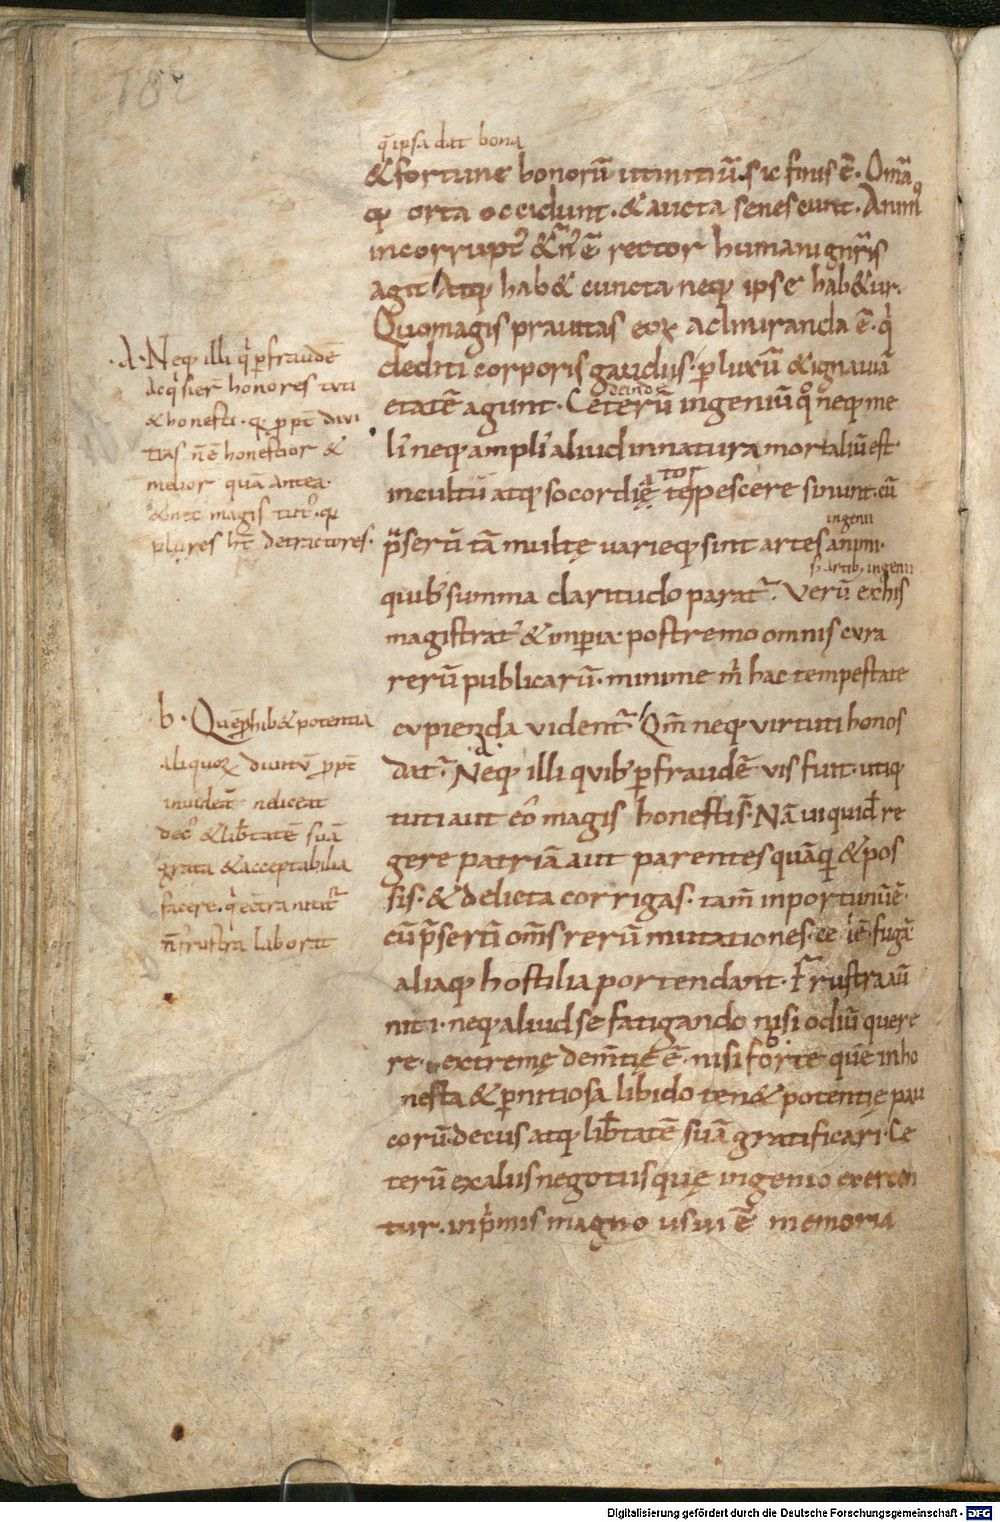 182
q̄ ipsa dat bona
& fortune bonorū ut initiū. sic finis ē. Om̄a
q; orta occidunt. & aucta senescunt. Anim᷒
incorrupt᷒ &ern᷒ rector humani gn̄ris
agit Atq; hab& cuncta neq; ipse hab&ur.
Quo magis prauitas eoꝝ admiranda ē. q̇
dediti corporis gaudiis. ꝑ luxū & ignauiā
deinde
etatē agunt. Ceterū ingeniū qͦ neq; me
li᷒ neq; ampli᷒ aliud in natura mortaliū est.
tor
incultū atq; socordię tepescere sinunt. cū
ingenii
p̄sertī tā multę varieq; sint artes animi.
s. artib; ingenii
quib᷒ summa claritudo parat᷒. Verū ex his
magistrat᷒ & imperia. postremo omnis cura
rerū publicarū. minime m̄ hac tempestate
b
cupienda vident᷒. Qm̄ neq; virtuti honos
a
dat᷒. Neq; illi quib᷒ ꝑ fraudē vis fuit. utiq;
tuti aut eo᷒ magis honesti s̄. Nā ui quidē re
gere patriā aut parentes quāq̄ & pos
sis. & delicta corrigas. tam̄ inportunū ē.
cū p̄sertī om̄s rerū mutationes. cede fugā
aliaq; hostilia portendant. Frustra aū
niti. neq; aliud se fatigando nisi odiū quere
re. extremę dem̄tię ē. nisi forte quē inho
nesta & ꝑnitiosa libido ten& potentię pau
corū. decus atq; lib̄tatē suā gratificari. Ce
terū ex aliis negotiis quę ingenio exercen
tur. inp̄mis magno usui ē memoria
.A. Neq; illi q̇ ꝑ fraudē
adq̇sier̄ honores tuti
& honesti. q; ꝑpt̄ divi
tias n̄ ē honestior &
melior quā antea.
& nec magis tut᷒. q;
plures h̄t detractores.
b. Quē ꝑhib& potentia
aliquoꝝ divitū ꝑpt̄
dec᷒ & lib̄tatē suā
grata & acceptabilia
facere. q̇ ec̄tra nitit᷒
n̄ frustra laborat
Digitalisierung gefördert durch die Deutsche Forschungsgemeinschaft - DFG